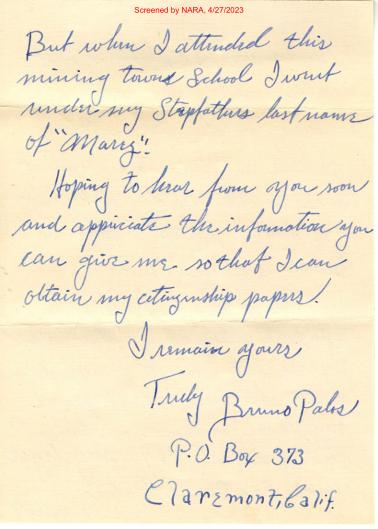 Screened by NARA, 4/27/2023
But when I attended this
mining towns School I went
under my Stepfathers last name
of "Marez".
Hoping to hear from you soon
and appiciate the information you
can give me so that I can
obtain my citizenship papers.
I remain yours
Truly Bruno Palos
P.O. Box 373
Claremont, Calif.